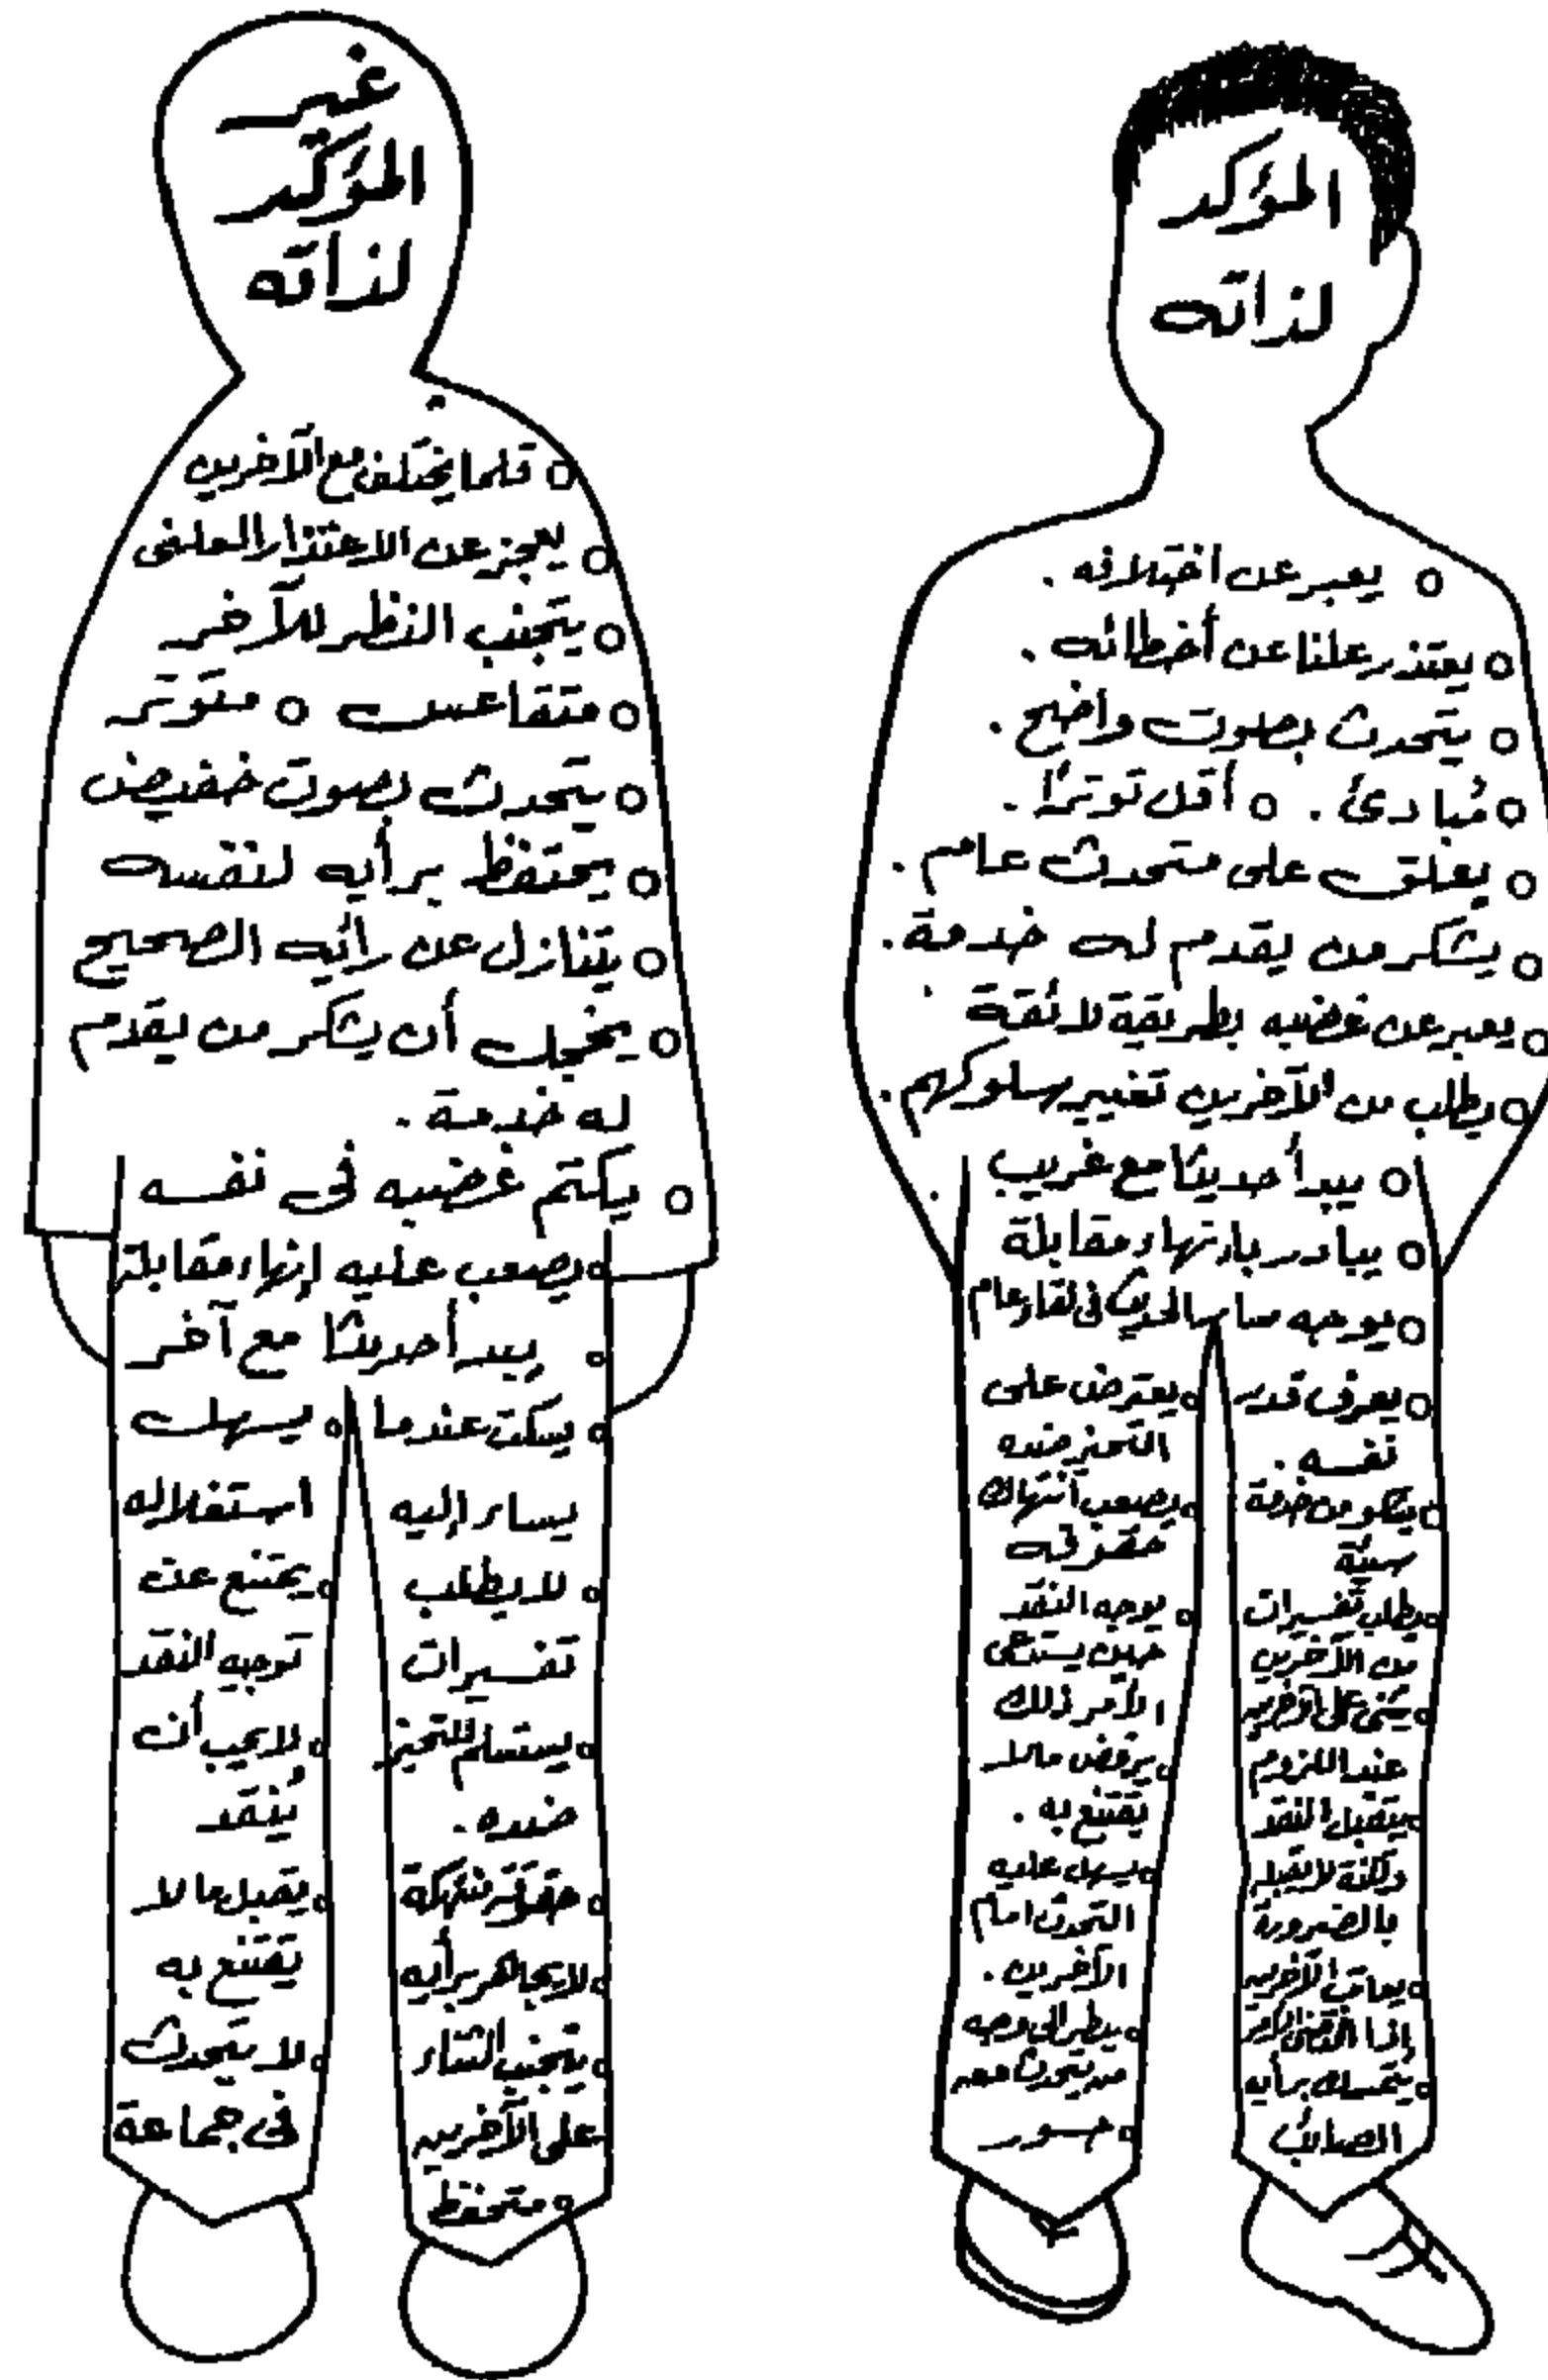 المؤكد
لذاته
○ يعبر عن اختلافه .
○ يعتذر علنا عن أخطائه .
○ يتحدث بصوت واضح .
○ مُبادئ . ○ أقل توترًا .
○ يعلق على متحدث عام .
○ يشكر من يقدم له خدمة .
○ يعبر عن غضبه بطريقة لائقة .
○ يطلب من الآخرين تغيير سلوكهم .
○ يبدأ حديثا مع غريب .
○ يبادر بإنهاء مقابلة
○ يوجه مسار الحديث فى لقاء عام
○ يعرف قدر
نفسه .
○ يشكو من خدمة
سيئة
○ يطلب تفسيرات
من الآخرين
○ يثنى على الآخرين
عند اللزوم
○ يتقبل النقد
ولكنه لا يقبله
بالضرورة
○ يعاتب الآخرين
إذا اقتضى الأمر
○ يتمسك برأيه
الصائب
○ يعترض على
التحيز ضده
○ يصعب انتهاك
حقوقه
○ يوجه النقد
حين يستدعى
الأمر ذلك
○ يرفض مالا
يقتنع به .
○ يسهل عليه
التحدث أمام
الآخرين .
○ ينظر إلى وجه
من يتحدث معه
○ جسور
غير
المؤكد
لذاته
○ قلما يختلف مع الآخرين
○ يعجز عن الاعتذار العلنى
○ يتجنب النظر للآخر
○ متقاعس ○ متوتر
○ يتحدث بصوت خفيض
○ يحتفظ برأيه لنفسه
○ يتنازل عن رأيه الصحيح
○ يخجل أن يشكر من يقدم
له خدمة .
○ يكتم غضبه فى نفسه
○ يصعب عليه إنهاء مقابلة
○ يبدأ حديثا مع آخر
○ يسكت عندما
يساء إليه
○ لا يطلب
تفسيرات
○ يستسلم للتحيز
ضده .
○ حقوقه منتهكة
○ لا يجاهر برأيه
○ يتجنب الثناء
على الآخرين
○ متحفظ
○ يسهل
استغلاله
○ يمتنع عن
توجيه النقد
○ لا يحب أن
يُنقد
○ يقبل ما لا
يقتنع به
○ لا يتحدث
فى جماعة